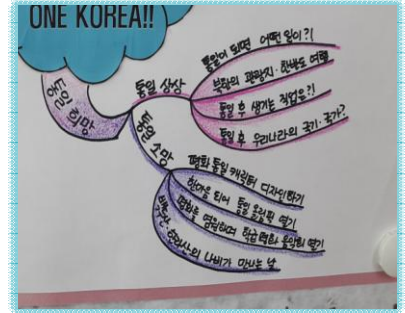 ONE KOREA!!
통일 희망
통일 상상
통일이 되면 어떤 일이?!
북한의 관광지·한반도 여행
통일 후 생기는 직업은?!
통일 후 우리나라의 국기·국가?
통일 소망
평화 통일 캐릭터 디자인하기
한마음 되어 통일 올림픽 열기
평화를 염원하며 작은평화 음악회 열기
백두산 한라산의 나비가 만나는 날